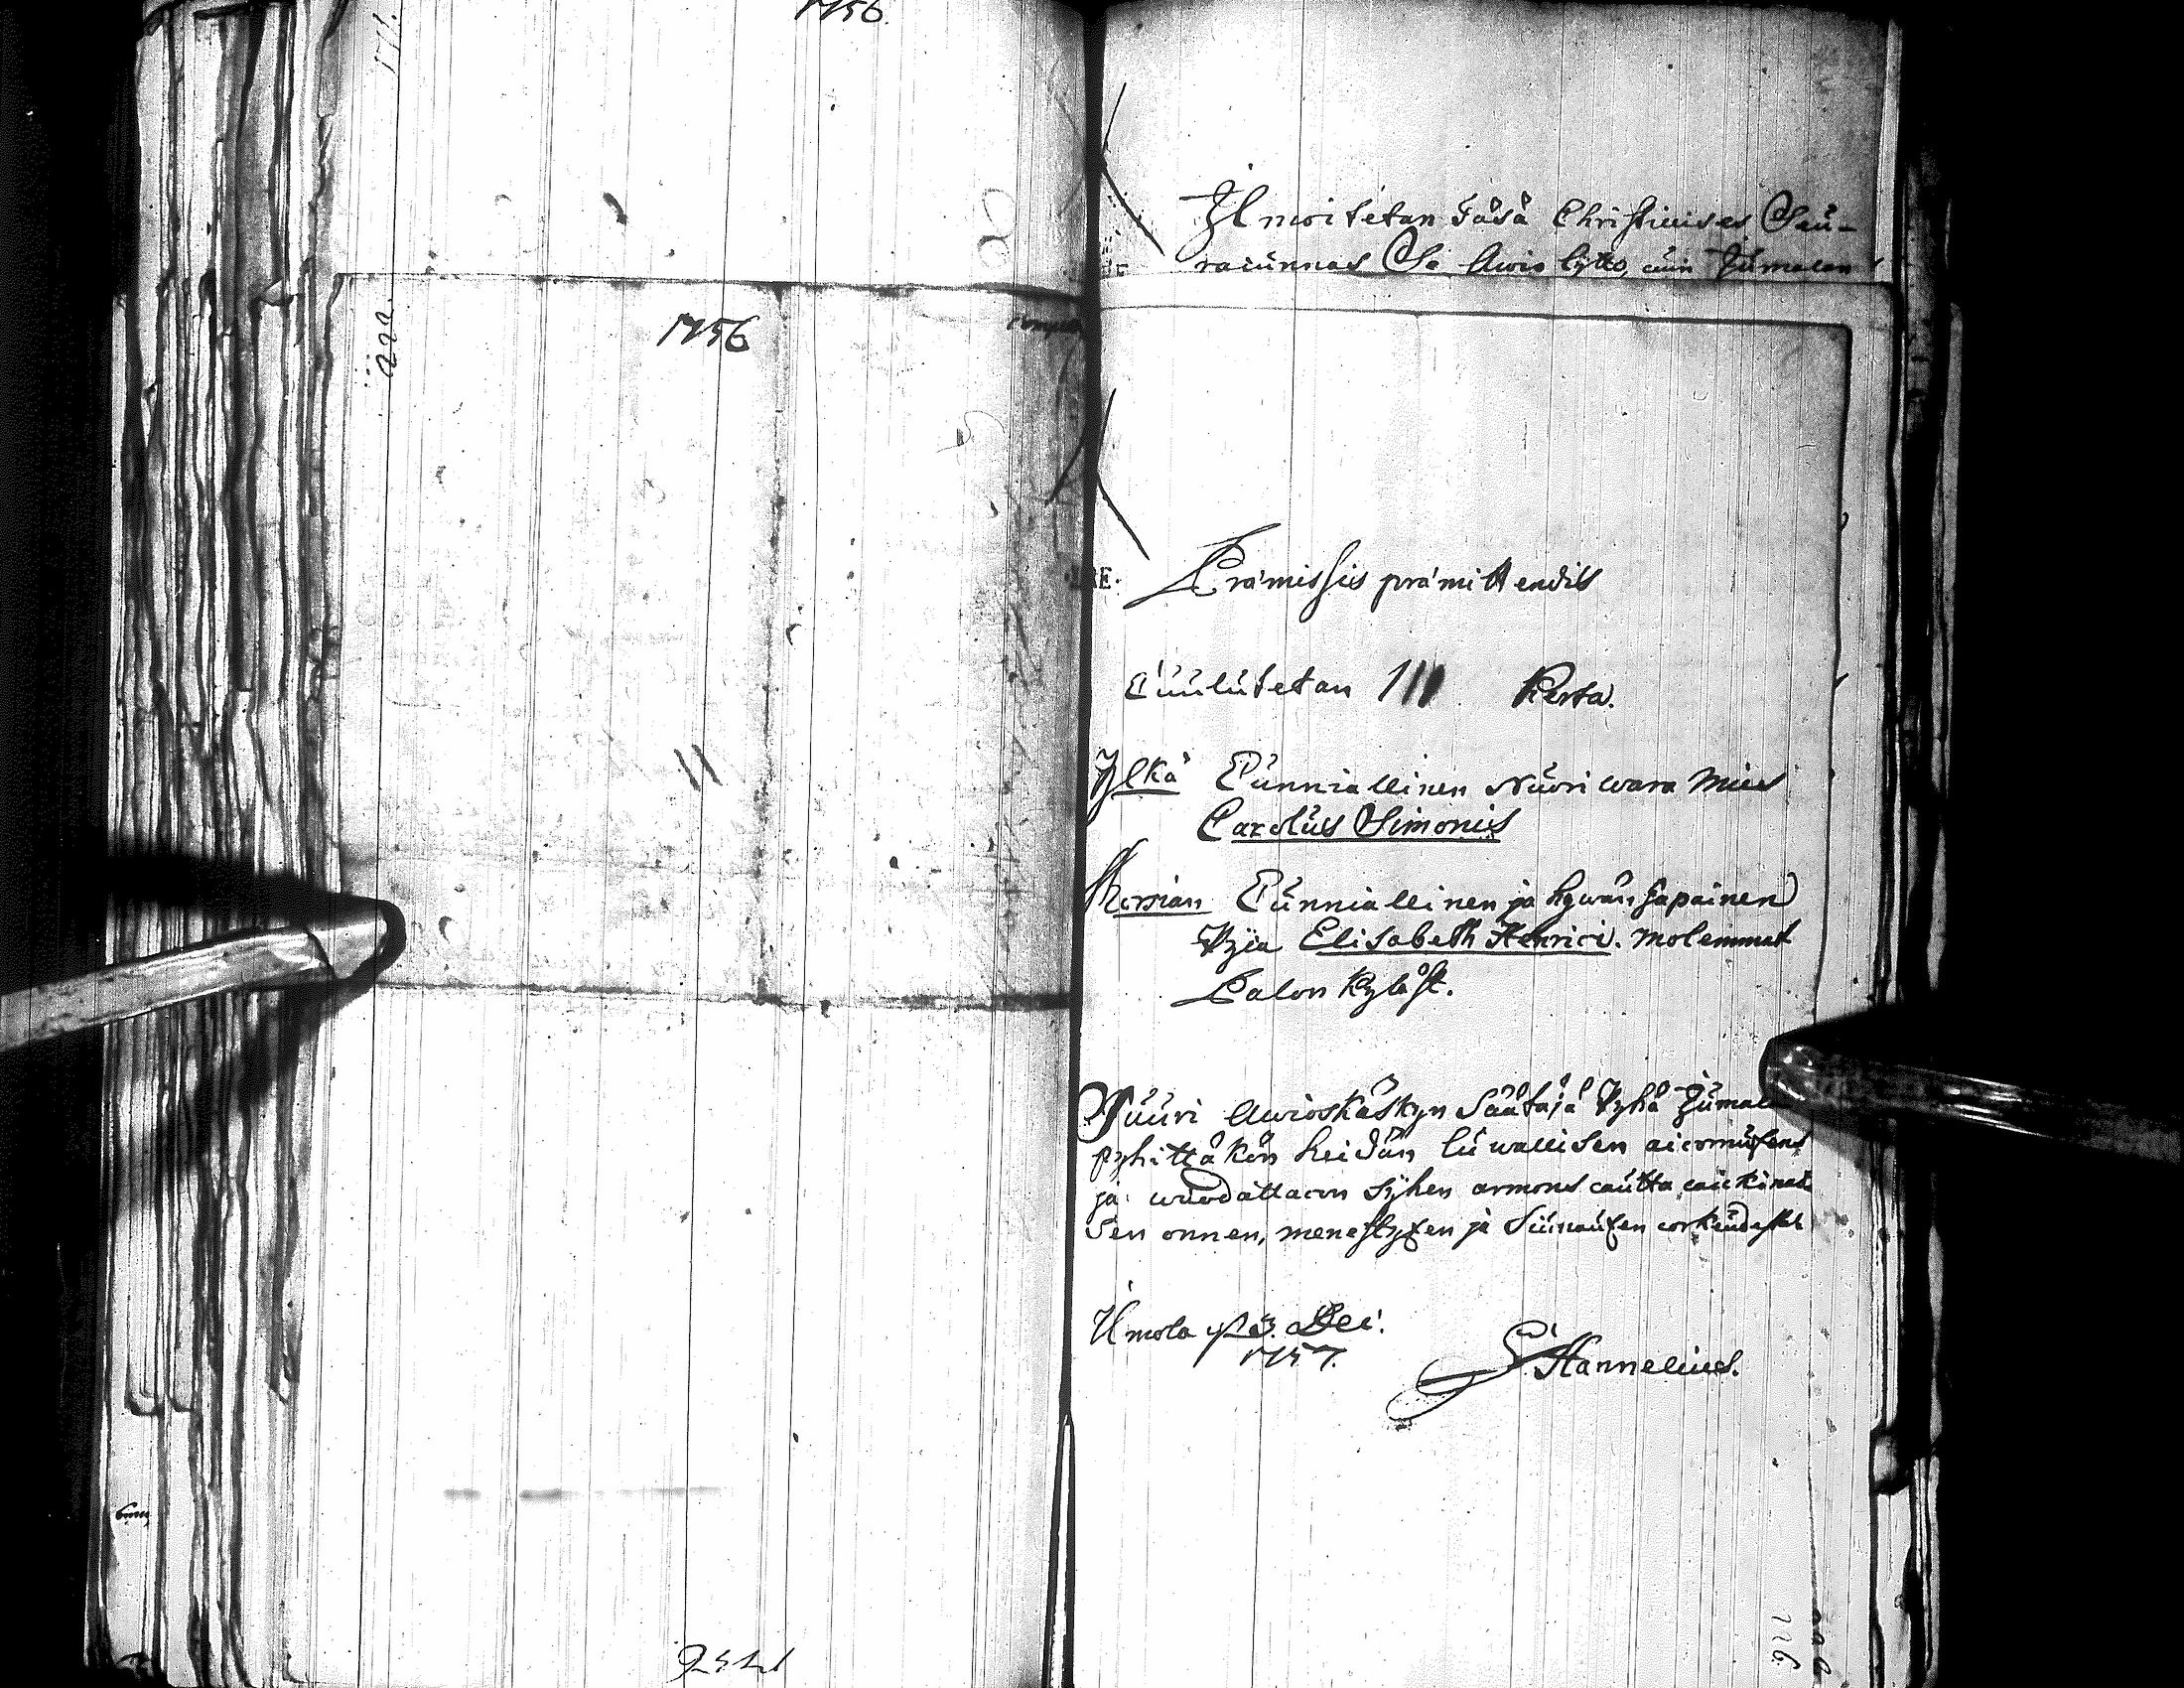 1756.
1756
11
Ilmoitetan täsä Christillises Seu-
racunnas Se Awio lijtto, cuin Jumalan
Præmissis præmittendis
Cuulutetan 111 Kerta.
Yljkä Cunniallinen Nuori wara Mies
Carolus Simonis
Morsian Cunniallinen ja hywän tapainen
Pyia Elisabeth Henrici. molemmat
Palon Kyläst.
Suuri Awioskäskyn Säätäjä Pyhä Jumala
pyhittäkön heidän luwallisen aicomusens
ja wuodattacon sijhen armons cautta caickinai-
sen onnen, menestyxen ja Siunauxen corkeudest
Umola 3. Dec.
1757.
Hannelius.